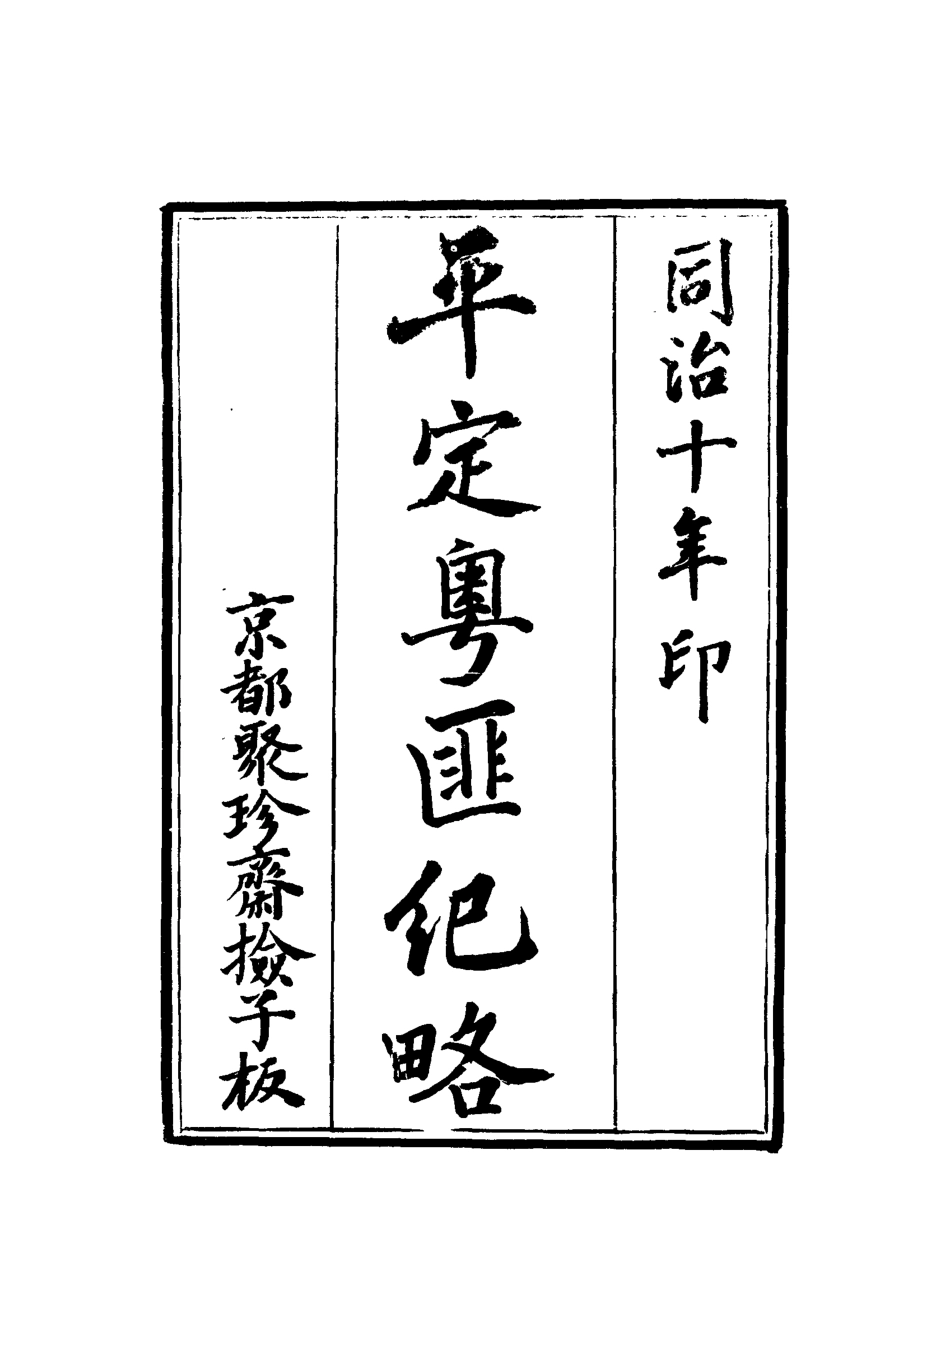 同治十年印
平定粵匪紀略
京都聚珍齋撿子板